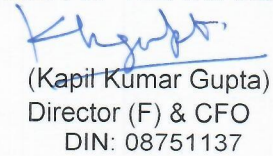 (Kapil Kumar Gupta)
Director (F) & CFO
DIN: 08751137